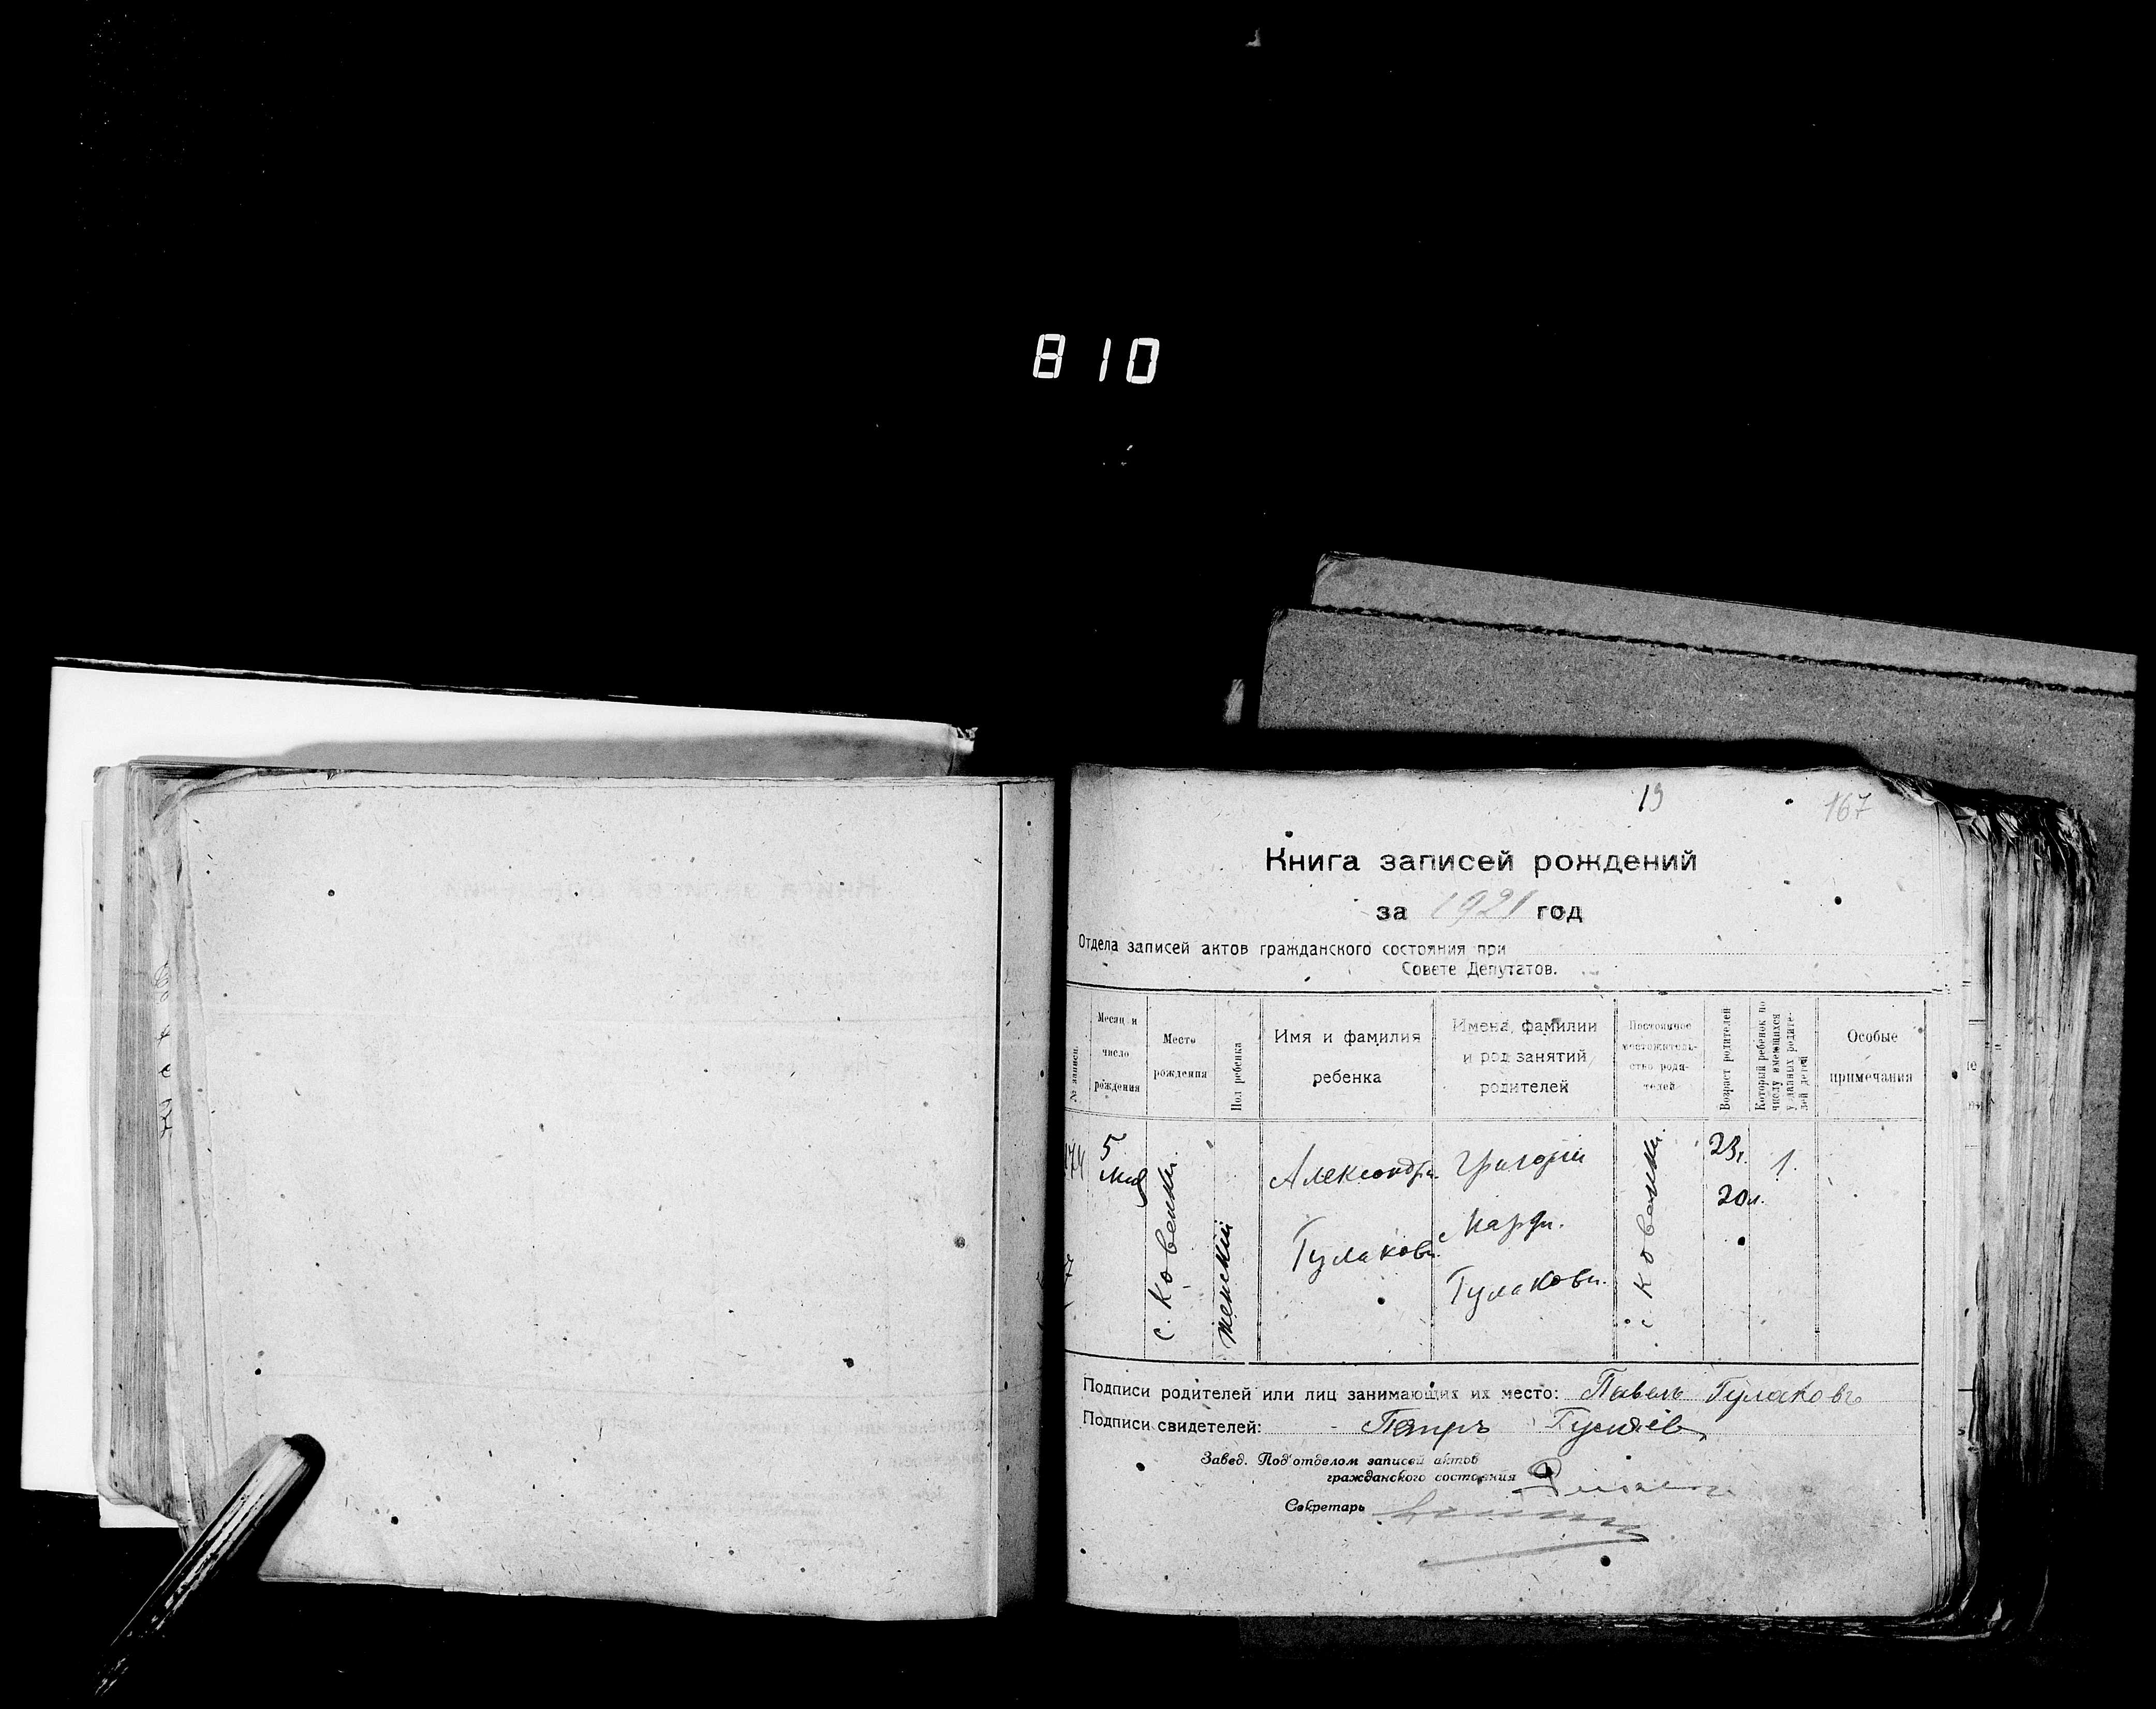 810
19
167
Книга записей рождений
за 1921 год
Отдела записей актов гражданского состояния при
Совете Депутатов.
№ записи.
Месяц и число рождения
Место рождения
Пол ребенка
Имя и фамилия ребенка
Имена, фамилии и род занятий родителей
Постоянное местожительство родителей
Возраст родителей
Который ребенок по числу имеющихся у данных родителей детей
Особые примечания
174
5
с. Ковенки
женский
Александра
Гулакова
Григорий
Марфа
Гулаковы
с Ковенки
23г.
20л.
1.
Подписи родителей или лиц занимающих их место: Павелъ Гулаковъ
Подписи свидетелей: Петръ
Завед. Под'отделом записей актов
гражданского состояния
Секретарь